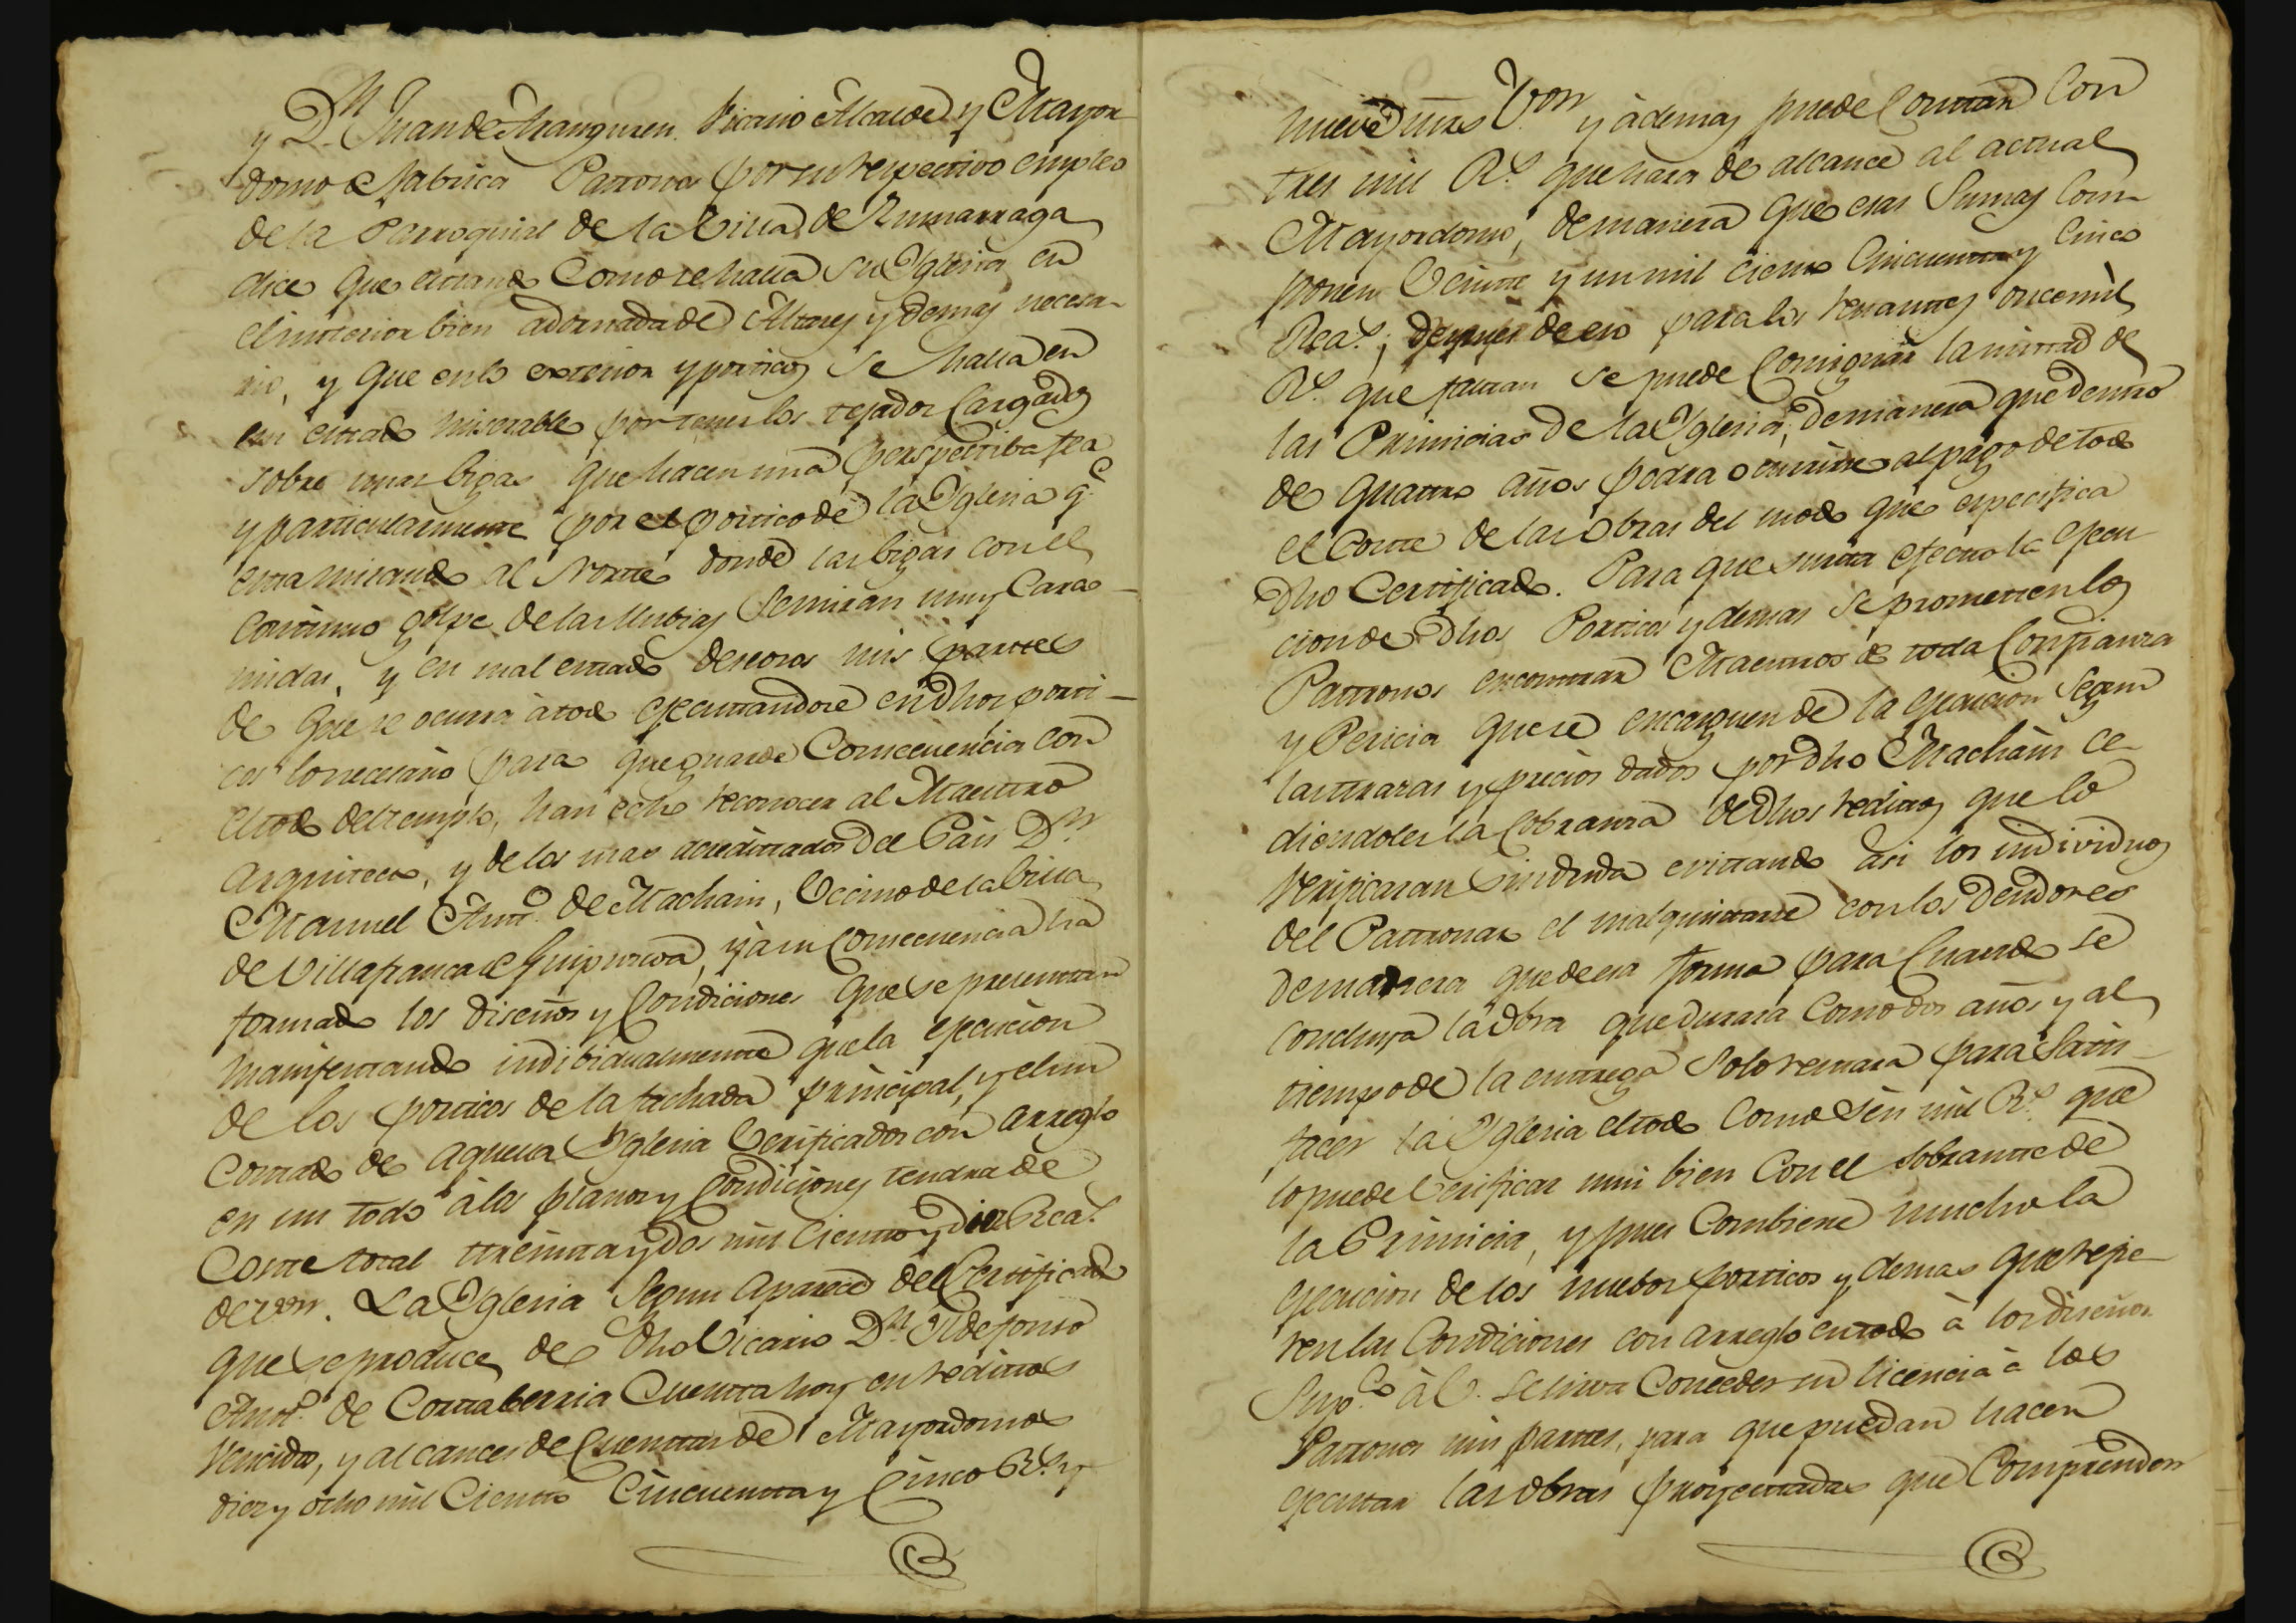 y Dn. Juan de Aranguren Vicario Alcalde y Mayor-
domo de fabrica Patronos por su respectivo empleo
de la Parroquial de la Villa de Zumarraga
dice que estando como se halla su Yglesia en
el interior bien adornada de Altares y demas necesa-
rio, y que en lo exterior y porticos se halla en
un estado miserable por tener los tejados cargados
sobre unas bigas que hacen una perspectiba fea
y particularmente por el portico de la Yglesia qe.
esta mirando al Norte donde las bigas con el
continuo golpe de las llubias se miran muy carco-
midas, y en mal estado deseosos mis partes
de que se ocurra à todo ejecutandose en dhos porti-
cos lo necesario para que guarde consecuencia con
el todo del templo, han echo reconocer al Maestro
Arquitecto, y de los mas acreditados del Pais Dn.
Manuel Anto. de Machain, Vecino de la Villa
de Villafranca de Guipuzcoa, y à su consecuencia ha
formado los diseños y condiciones que se presentan
manifestando indibidualmente que la ejecucion
de los porticos de la fachada principal, y el un
costado de aquella Yglesia verificados con arreglo
en un todo à los planos y condiciones tendra de
coste total treinta y dos mil ciento y diez Reas.
de von. La Yglesia segun aparece del Certificado
que se produce de dho Vicario Dn. Yldefonso
Anto. de Contaberria cuenta hoy en reditos
vencidos, y alcances de cuentas de Mayordomos
diez y ocho mil ciento cincuenta y cinco Rs. y
nueve mrs Von y àdemas puede contar con
tres mil Rs. que hara de alcance al actual
Mayordomo, de manera que esas sumas com-
ponen veinte y un mil ciento cincuenta y cinco
Reas.; despues de eso para los restantes once mil
Rs. que faltan se puede consignar la mitad de
las Primicias de la Yglesia, de manera que dentro
de quatro años podra ocurrirse al pago de todo
el coste de las obras del modo que especifica
dho Certificado. Para que surta efecto la ejecu
cion de dhos Porticos y demas se prometen los
Patronos encontrar Maestros de toda confianza
y Pericia que se encarguen de la ejecucion segun
las trazas y precios dados por dho Machain ce-
diendoles la cobranza de dhos reditos que lo
verificaran sin duda evitando asi los individuos
del Patronar el malquistarse con los deudores
de manera que de esa forma para cuando se
concluya la obra que durara como dos años y al
tiempo de la entrega solo restara para satis-
facer la Yglesia el todo como seis mil Rs. que
lo puede verificar mui bien con el sobrante de
la Primicia, y pues combiene mucho la
ejecucion de los nuebos porticos y demas que refie-
ren las condiciones con arreglo en todo à los diseños
Supco. à V. se sirva conceder su licencia à los
Patronos mis partes, para que puedan hacer
ejecutar las obras proyectadas que comprenden